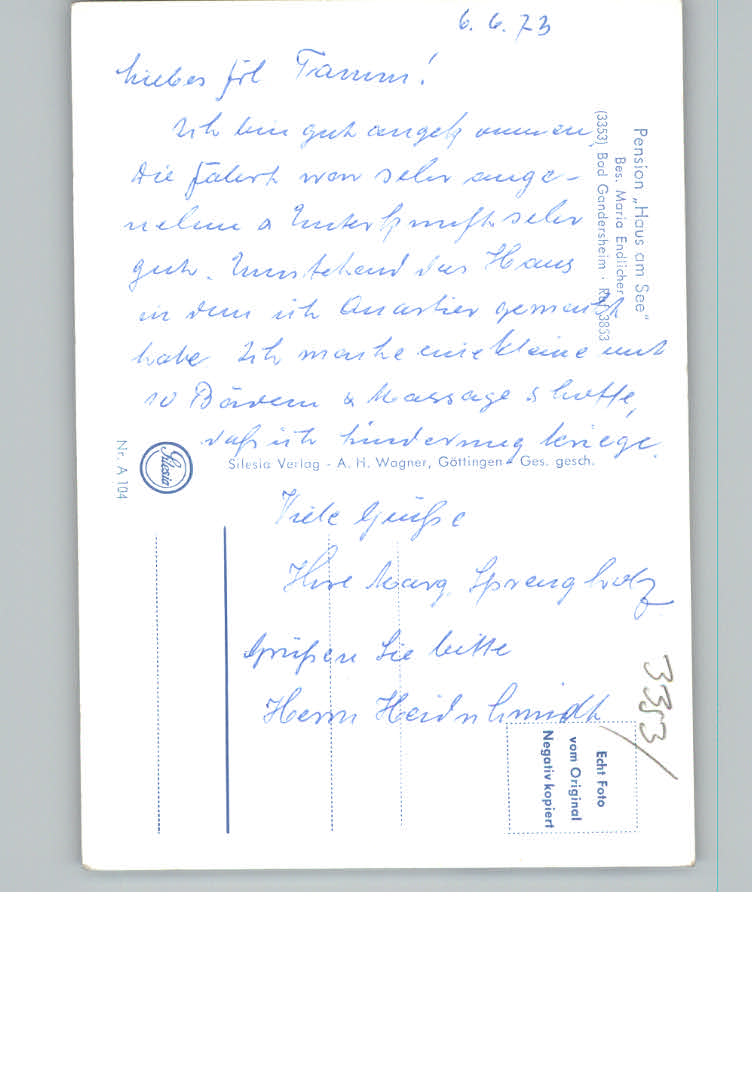 6. 6. 73
Liebes Frl Tamm!
Ich bin gut angekommen,
die Fahrt war sehr ange-
nehm & Unterkunft sehr
gut. Umstehend das Haus
in dem ich Quartier gemacht
habe Ich mache eine kleine mit
10 Bädern & Massage & hoffe,
daß ich Linderung kriege.
Viele Grüße
Ihre Marg. Sprengholz
Grüßen Sie bitte
Herrn Heidschmidt
Pension „Haus am See"
Bes. Maria Endlicher
(3353) Bad Gandersheim · Ruf 3853
Silesia Verlag - A. H. Wagner, Göttingen - Ges. gesch.
Silesia
Nr. A 104
Echt Foto
vom Original
Negativ kopiert
3353/